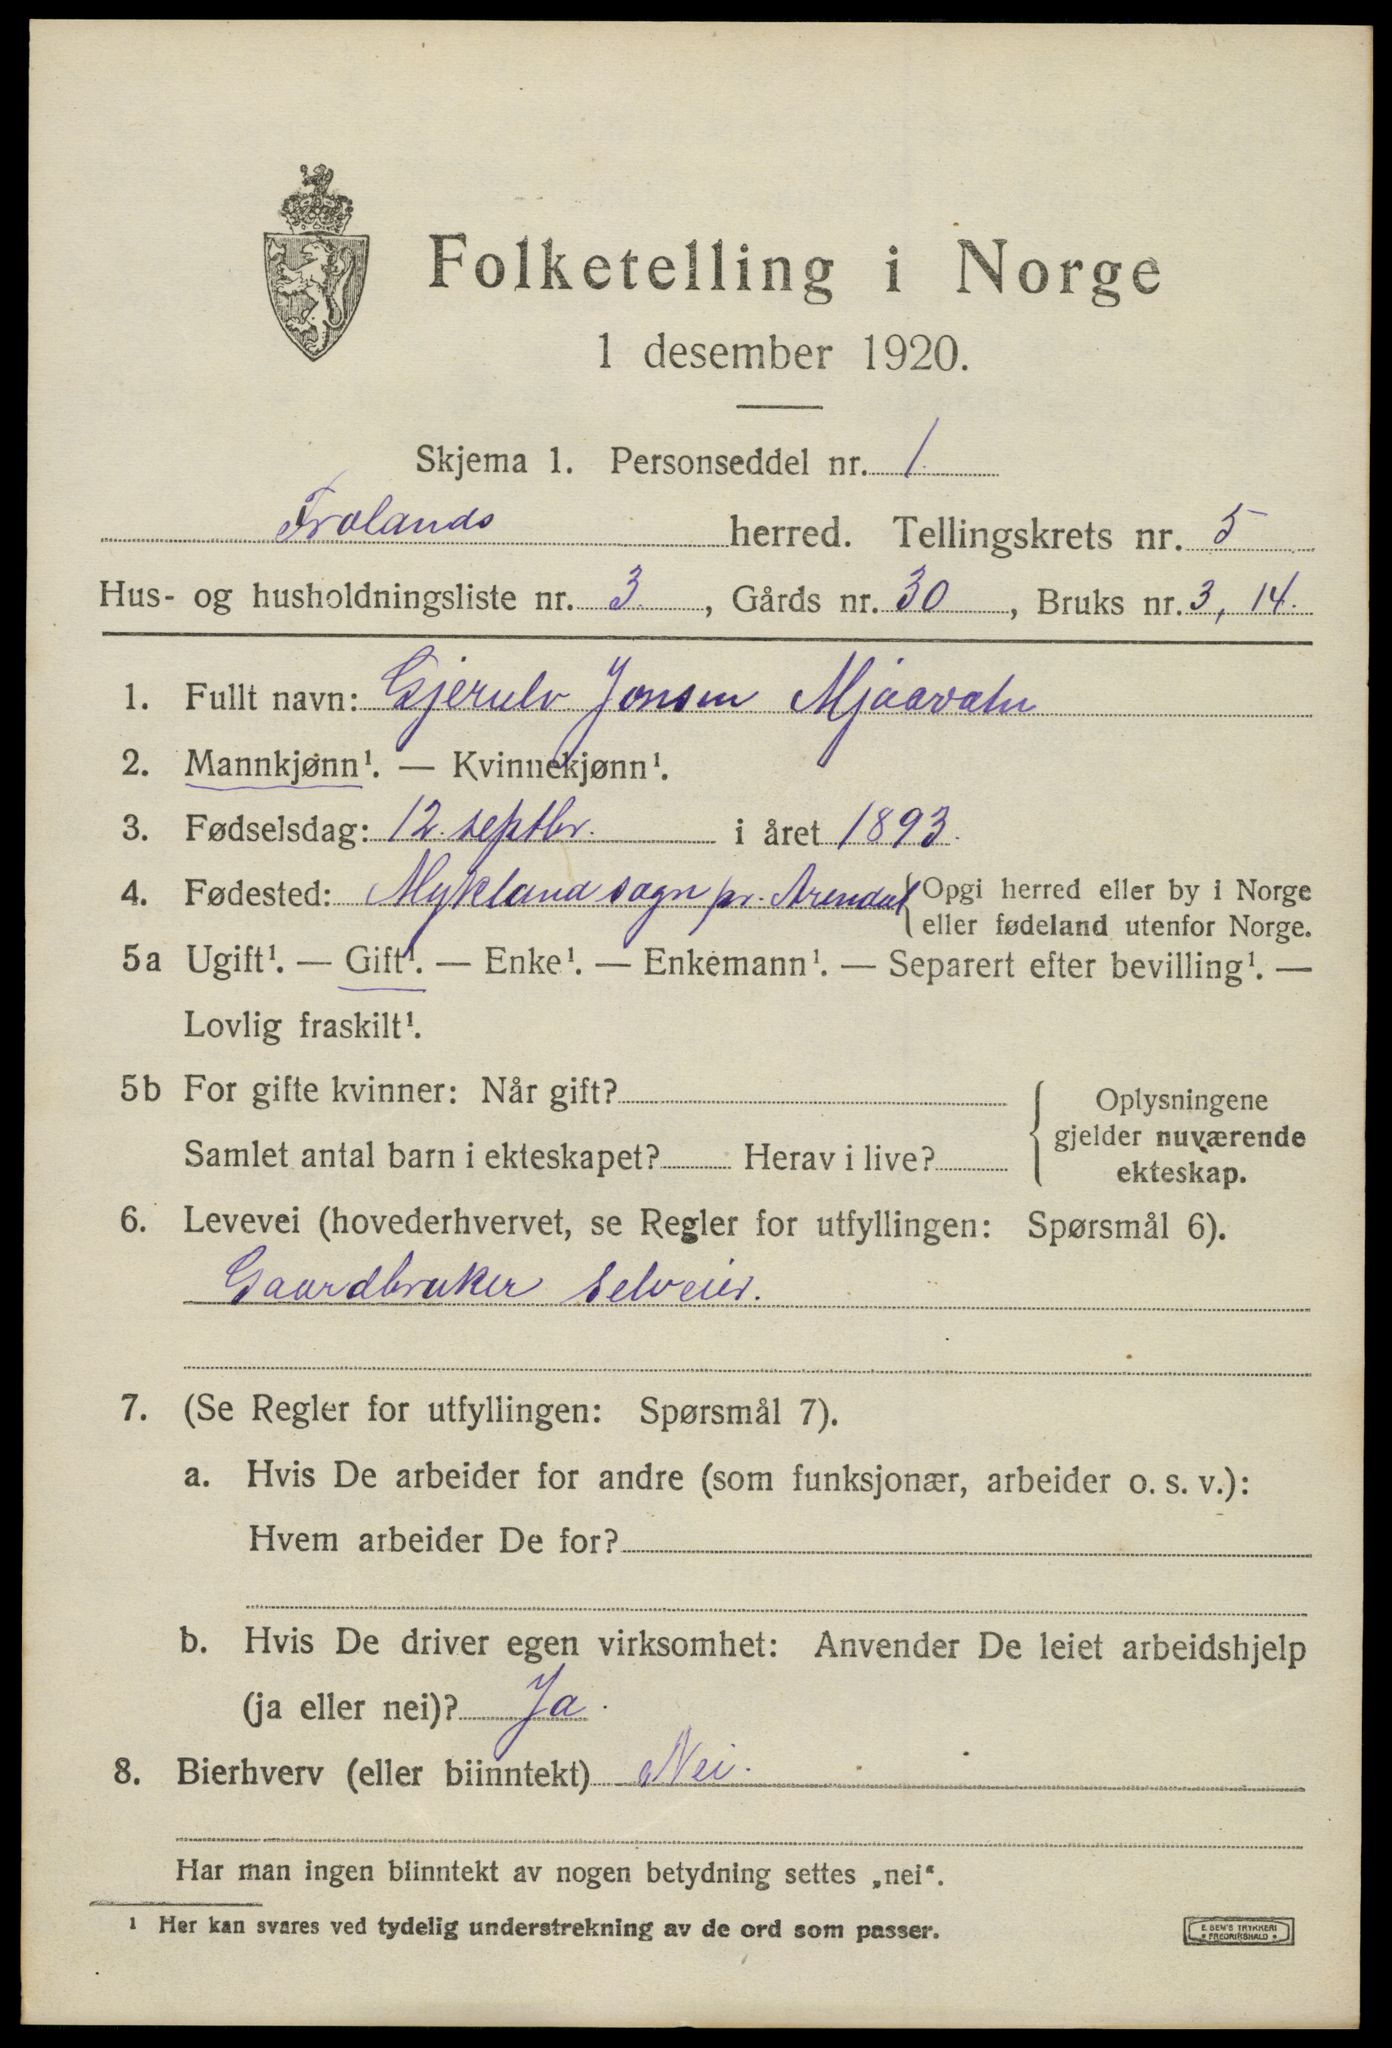 Folketelling i Norge
1 desember 1920.
Skjema 1. Personseddel nr. 1.
Frolands herred. Tellingskrets nr. 5
Hus- og husholdningsliste nr. 3. , Gårds nr. 30 , Bruks nr. 3, 14.
1. Fullt navn: Gjerulv Jonsen Mjaavatn
2. Mannkjønn¹. — Kvinnekjønn¹.
3. Fødselsdag: 12. septbr. i året 1893.
4. Fødested: Mykland sogn pr. Arendal { Opgi herred eller by i Norge
eller fødeland utenfor Norge.
5a Ugift¹. — Gift¹. — Enke¹. — Enkemann¹. — Separert efter bevilling¹. —
Lovlig fraskilt¹.
5b For gifte kvinner: Når gift?
Samlet antal barn i ekteskapet? Herav i live?
Oplysningene
gjelder nuværende
ekteskap.
6. Levevei (hovederhvervet, se Regler for utfyllingen: Spørsmål 6).
Gaardbruker selveier.
7. (Se Regler for utfyllingen: Spørsmål 7).
a. Hvis De arbeider for andre (som funksjonær, arbeider o. s. v.):
Hvem arbeider De for?
b. Hvis De driver egen virksomhet: Anvender De leiet arbeidshjelp
(ja eller nei)? Ja.
8. Bierhverv (eller biinntekt) Nei.
Har man ingen biinntekt av nogen betydning settes „nei“.
¹ Her kan svares ved tydelig understrekning av de ord som passer.
E. SEM'S TRYKKERI
FREDRIKSHALD